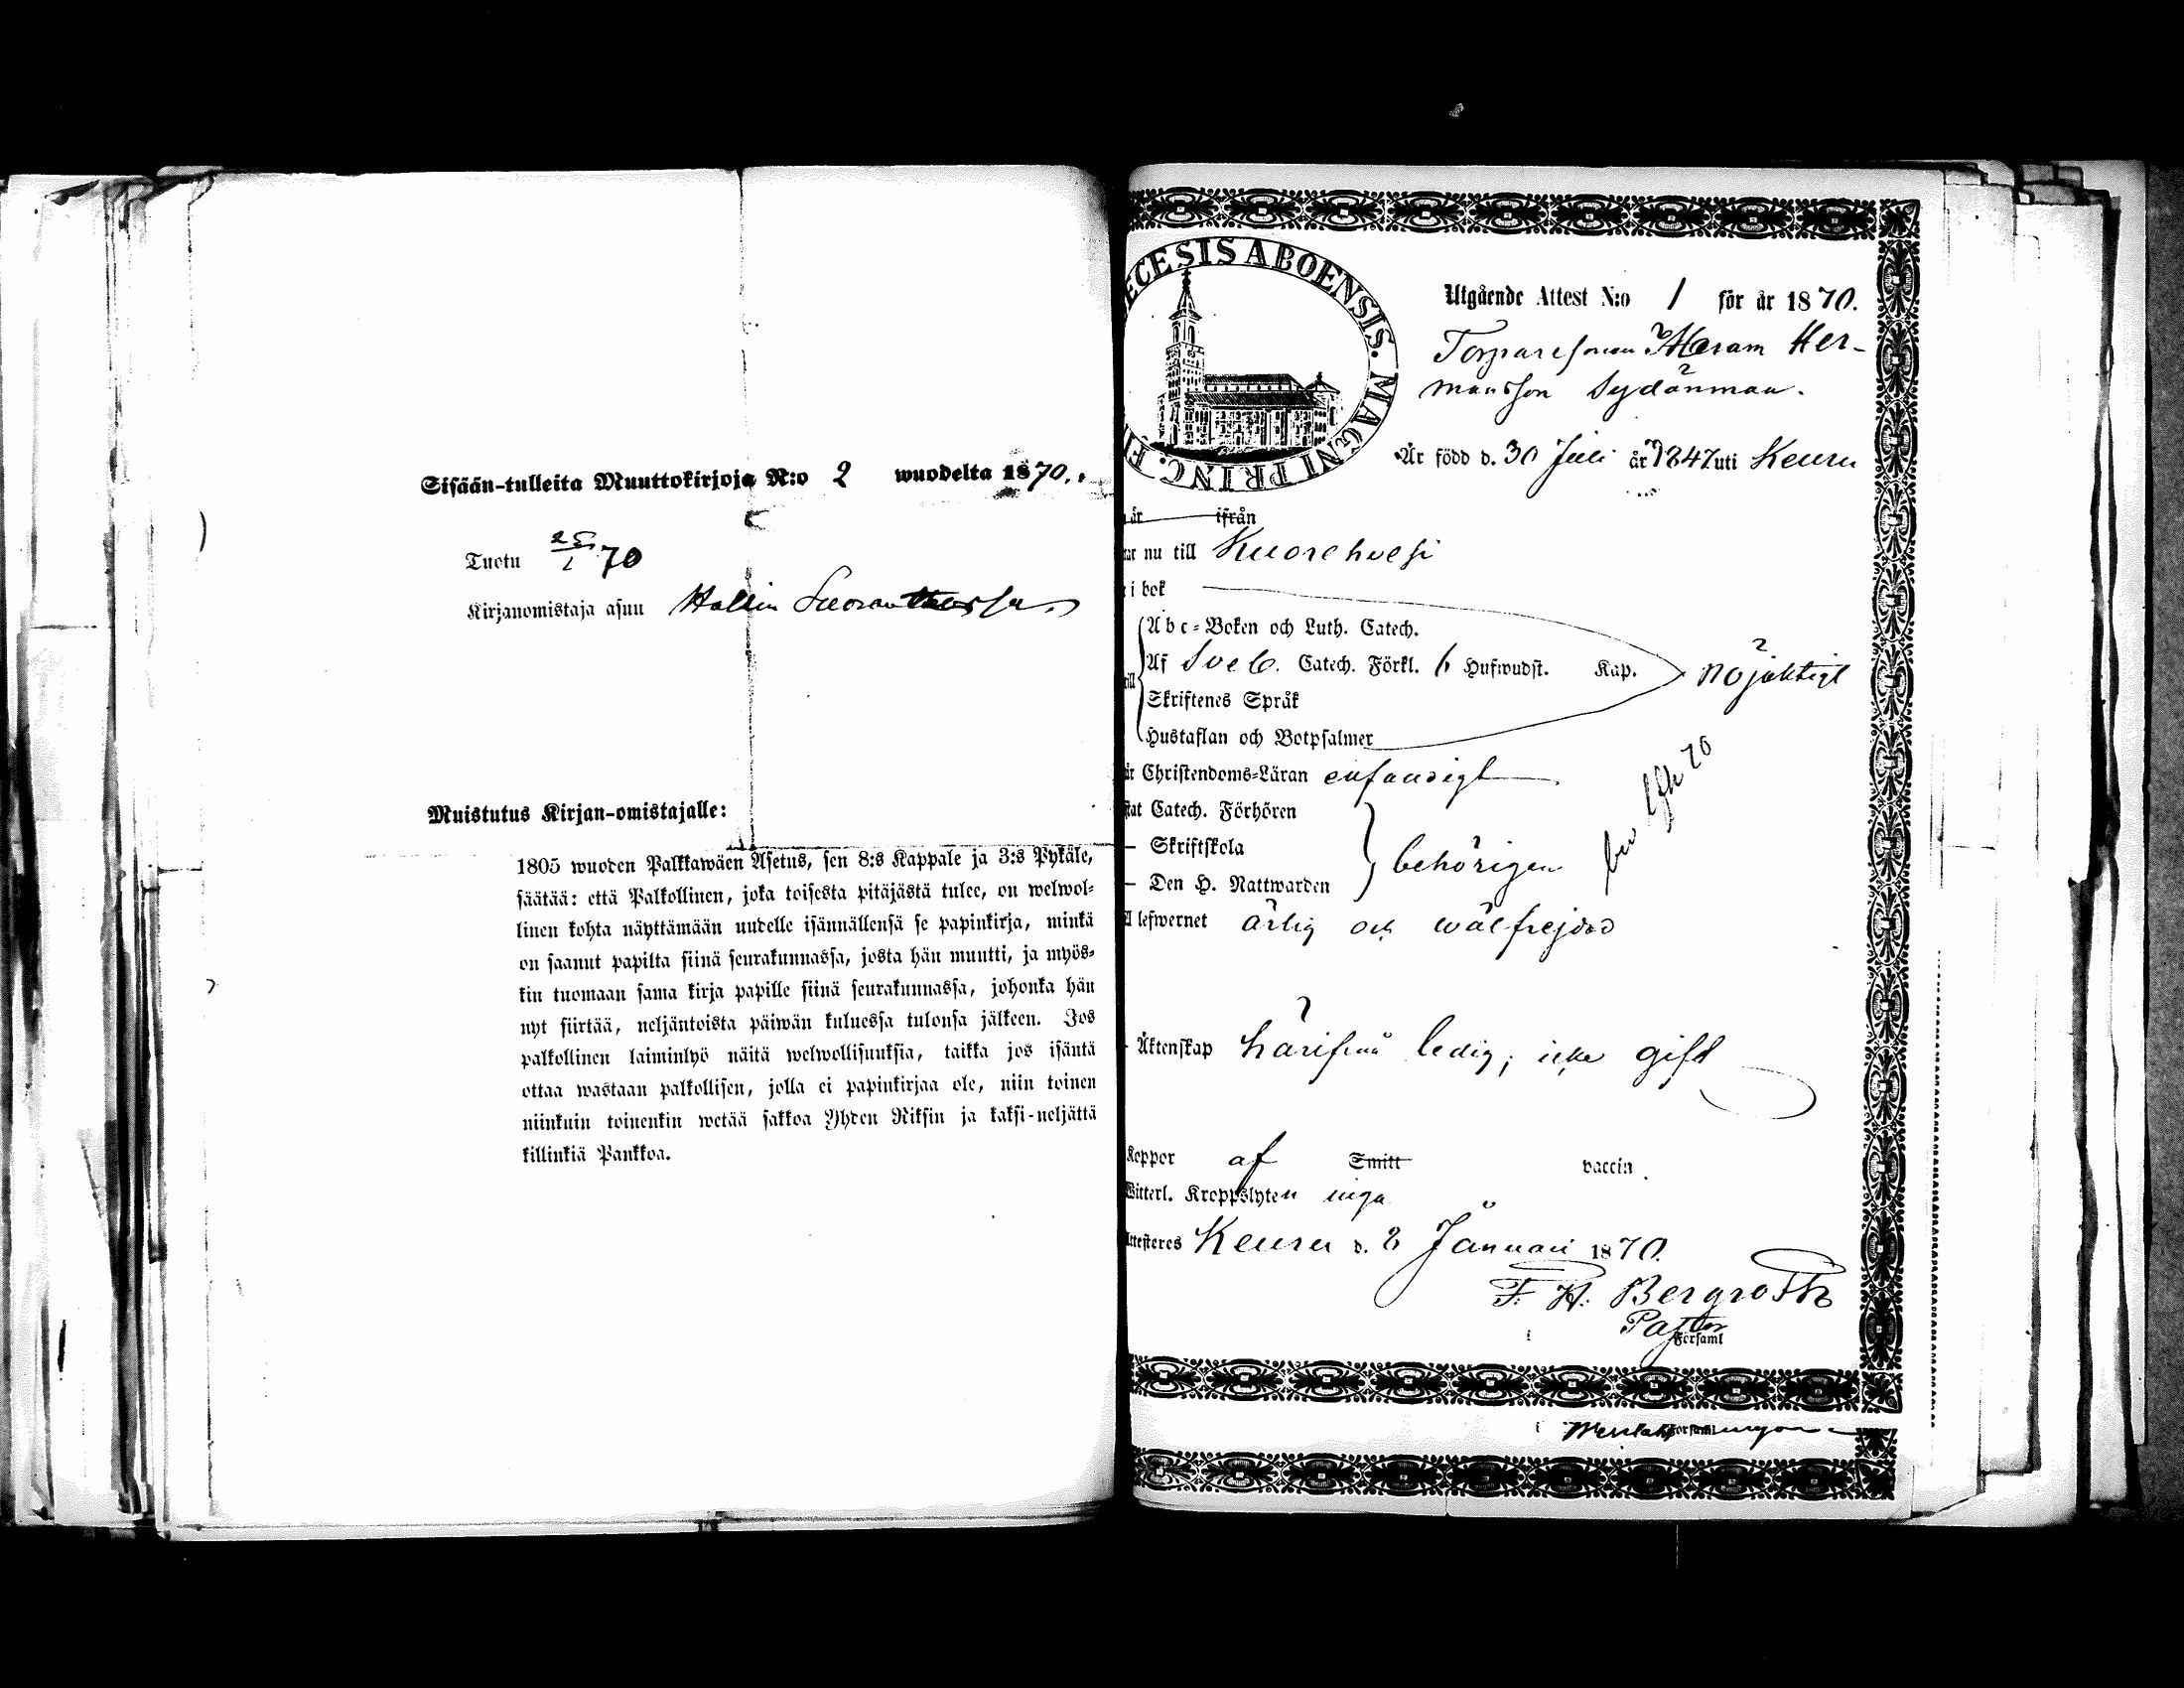 Sisään-tulleita Muuttokirjoja N:o 2 wuodelta 1870.
Tuotu 25/1 70
Kirjanomistaja asuu Hallin
Muistutus Kirjan-omistajalle:
1805 wuoden Palkkawäen Asetus, sen 8:s Kappale ja 3:s Pykäle,
säätää: että Palkollinen, joka toisesta pitäjästä tulee, on welwol-
linen kohta näyttämään uudelle isännällensä se papinkirja, minkä
on saanut papilta siinä seurakunnassa, josta hän muutti, ja myös-
kin tuomaan sama kirja papille siinä seurakunnassa, johonka hän
nyt siirtää, neljäntoista päiwän kuluessa tulonsa jälkeen. Jos
palkollinen laiminlyö näitä welwollisuuksia, taikka jos isäntä
ottaa wastaan palkollisen, jolla ei papinkirjaa ole, niin toinen
niinkuin toinenkin wetää sakkoa Yhden Riksin ja kaksi-neljättä
killinkiä Pankkoa.
ECESIS ABOENSIS. MAGNI PRINC. FI
Utgående Attest N:o 1 för år 1870.
Torparesonen Her-
mansson Sydänmaa.
Är född d. 30 Juli år 1847 uti Keuru
år ifrån
nu till Kuorehvesi
i bok
Abc-Boken och Luth. Catech.
Af Sveb. Catech. Förkl. 6 Hufwudst. Kap. nöjaktigt
Skriftenes Språk
Hustaflan och Botpsalmer
Christendoms-Läran enfaldigt
Catech. Förhören
— Skriftskola
— Den H. Nattwarden
behörigen
lefwernet ärlig och wälfrejdad
Äktenskap härifrån ledig, icke gift
Koppor af Smitt vaccin.
Witterl. Kroppslyten inga
Attesteras Keuru d. 2 Januari 1870.
F. H. Bergroth
Pastor
Församl